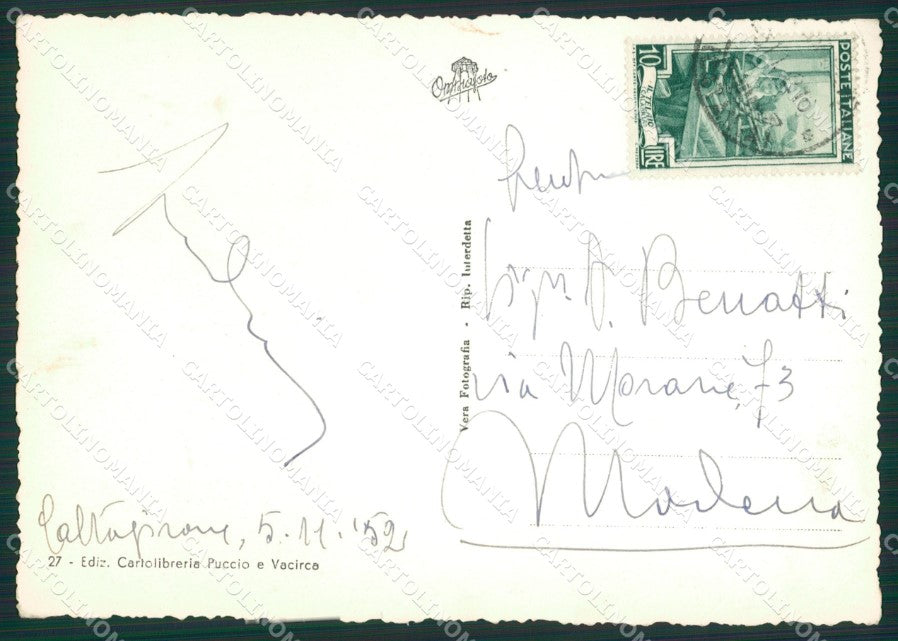 10
LIRE
POSTE ITALIANE
Vera Fotografia - Rip. Interdetta
Sig. A. Benatti
via Morane, 73
Modena
Caltagirone, 5.11.'52
27 - Ediz. Cartolibreria Puccio e Vacirca
CARTOLINOMANIA